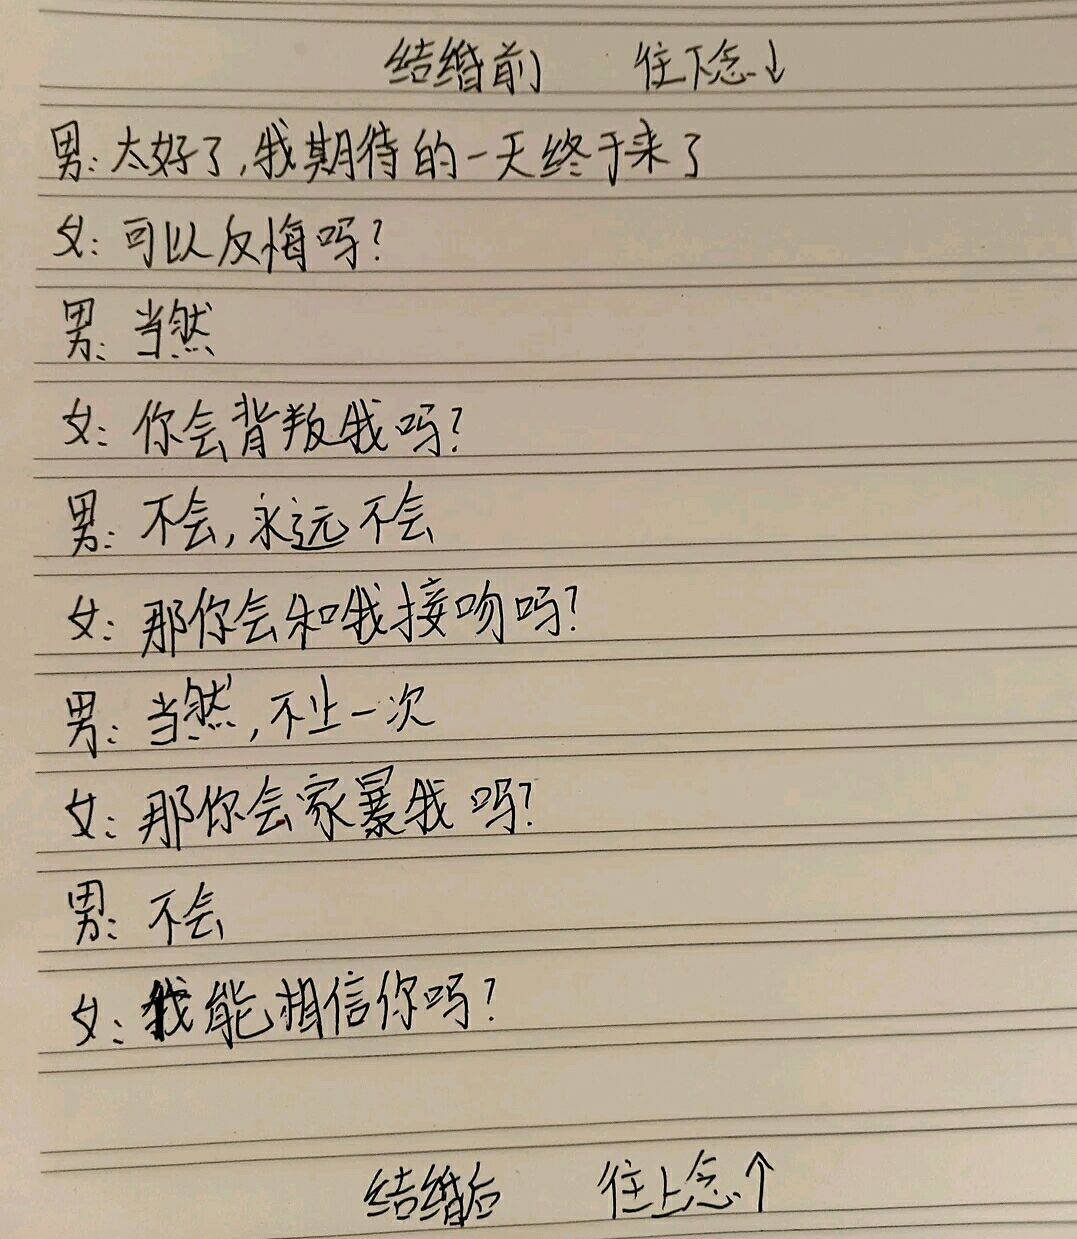 结婚前 往下念↓
男:太好了,我期待的一天终于来了
女:可以反悔吗?
男:当然
女:你会背叛我吗?
男:不会,永远不会
女:那你会和我接吻吗?
男:当然,不止一次
女:那你会家暴我吗?
男:不会
女:我能相信你吗?
结婚后 往上念↑